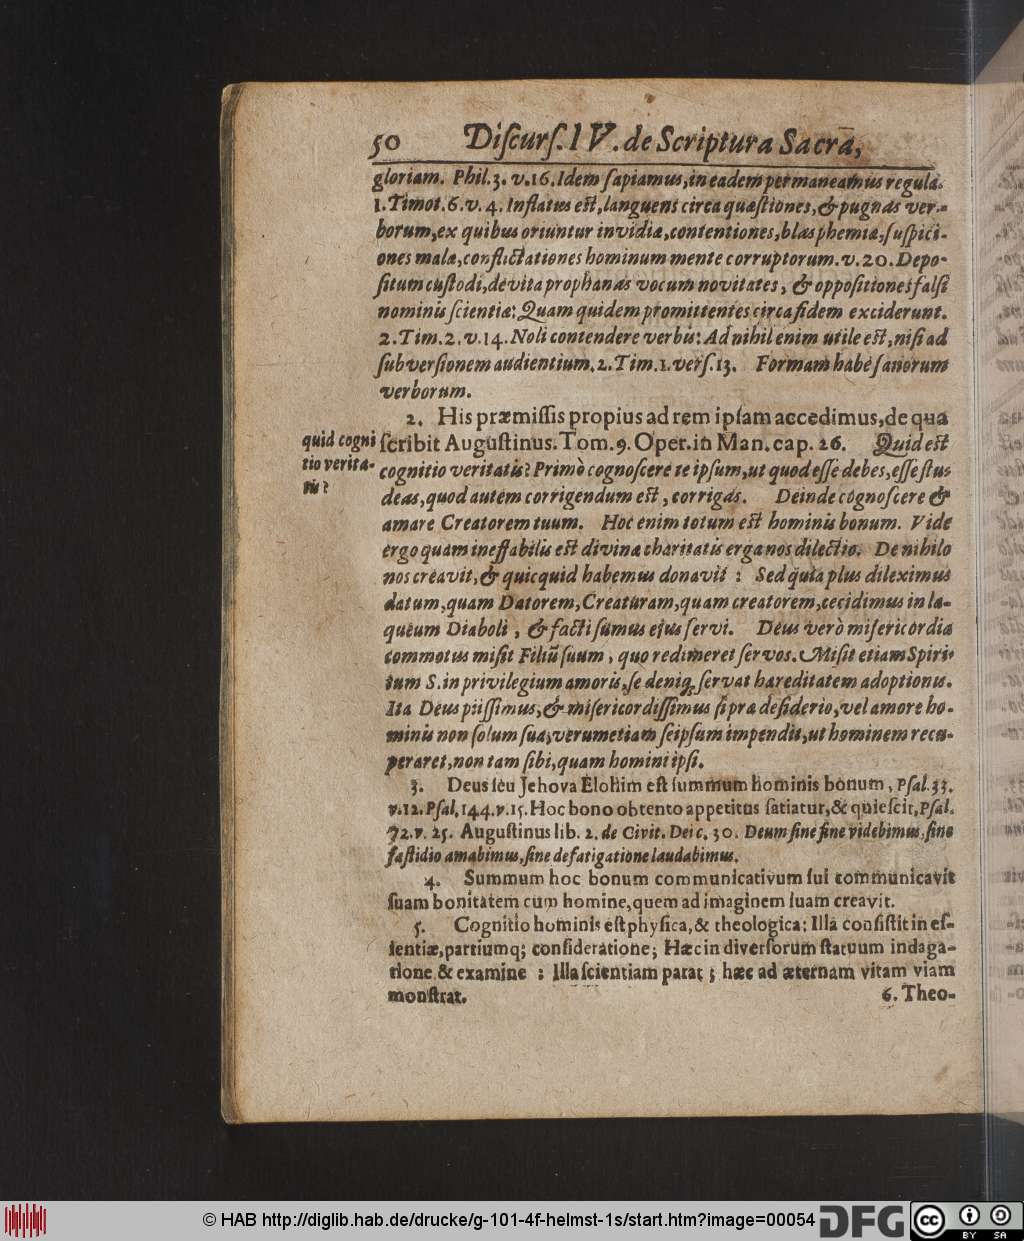 50 Diſcurſ. IV. de Scriptura Sacra,
gloriam. Phil. 3. v. 16. Idem ſapiamus, in eadem permaneamus regula.
1. Timot. 6. v. 4. Inflatus eſt, languens circa quæſtiones, & pugnas ver-
borum, ex quibus oriuntur invidiæ, contentiones, blasphemiæ, ſuſpici-
ones malæ, conflictationes hominum mente corruptorum. v. 20. Depo-
ſitum cuſtodi, devita prophanas vocum novitates, & oppoſitiones falſi
nominis ſcientiæ: Quam quidem promittentes circa fidem exciderunt.
2. Tim. 2. v. 14. Noli contendere verbis: Ad nihil enim utile eſt, niſi ad
ſubverſionem audientium. 2. Tim. 1. verſ. 13. Formam habè ſanorum
verborum.
2. His præmiſſis propius ad rem ipſam accedimus, de qua
quid cogni
tio verita-
tis?
ſcribit Auguſtinus. Tom. 9. Oper. in Man. cap. 26. Quid eſt
cognitio veritatis? Primò cognoſcere te ipſum, ut quod eſſe debes, eſſe ſtu-
deas, quod autem corrigendum eſt, corrigas. Deinde cognoſcere &
amare Creatorem tuum. Hoc enim totum eſt hominis bonum. Vide
ergo quàm ineffabilis eſt divinæ charitatis erga nos dilectio. De nihilo
nos creavit, & quicquid habemus donavit: Sed quia plus dileximus
datum, quam Datorem, Creaturam, quam creatorem, cecidimus in la-
queum Diaboli, & facti ſumus ejus ſervi. Deus verò miſericordia
commotus miſit Filiū ſuum, quo redimeret ſervos. Miſit etiam Spiri-
tum S. in privilegium amoris, ſe deniq; ſervat hæreditatem adoptionis.
Ita Deus piiſſimus, & miſericordiſſimus ſi præ deſiderio, vel amore ho-
minis non ſolum ſua, verumetiam ſeipſum impendit, ut hominem recu-
peraret, non tam ſibi, quam homini ipſi.
3. Deus ſeu Jehova Elohim eſt ſummum hominis bonum, Pſal. 33.
v. 12. Pſal. 144. v. 15. Hoc bono obtento appetitus ſatiatur, & quieſcit, Pſal.
72. v. 25. Auguſtinus lib. 2. de Civit. Dei c. 30. Deum ſine fine videbimus, ſine
faſtidio amabimus, ſine defatigatione laudabimus.
4. Summum hoc bonum communicativum ſui communicavit
ſuam bonitatem cum homine, quem ad imaginem ſuam creavit.
5. Cognitio hominis eſt phyſica, & theologica: Illa conſiſtit in eſ-
ſentiæ, partiumq; conſideratione; Hæc in diverſorum ſtatuum indaga-
tione & examine: Illa ſcientiam parat; hæc ad æternam vitam viam
monſtrat.
6. Theo-
© HAB http://diglib.hab.de/drucke/g-101-4f-helmst-1s/start.htm?image=00054 DFG cc BY SA